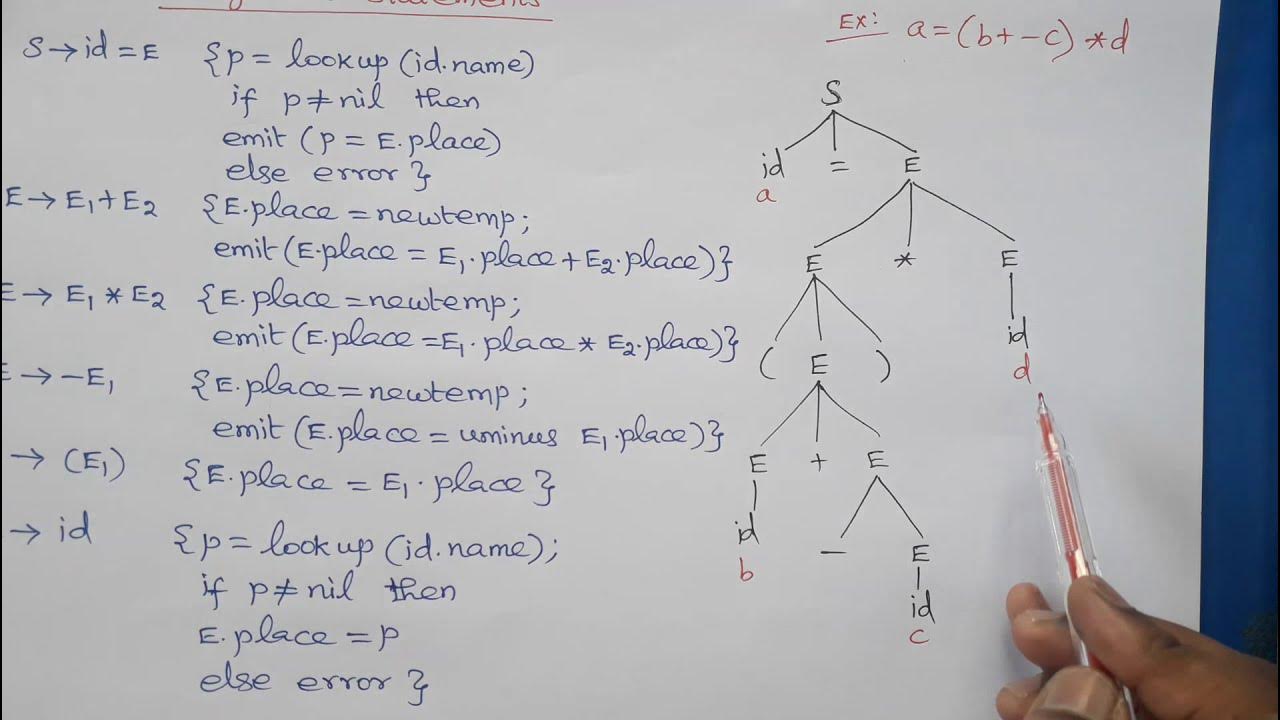 Statements
S → id = E {p = lookup (id.name)
if p ≠ nil then
emit (p = E.place)
else error }
E → E₁ + E₂ {E.place = newtemp;
emit (E.place = E₁.place + E₂.place)}
E → E₁ * E₂ {E.place = newtemp;
emit (E.place = E₁.place * E₂.place)}
E → -E₁ {E.place = newtemp;
emit (E.place = uminus E₁.place)}
→ (E₁) {E.place = E₁.place }
→ id {p = lookup (id.name);
if p ≠ nil then
E.place = p
else error }
Ex: a = (b + - c) * d
S
id = E
a
E * E
id
( E ) d
E + E
id
b - E
id
c